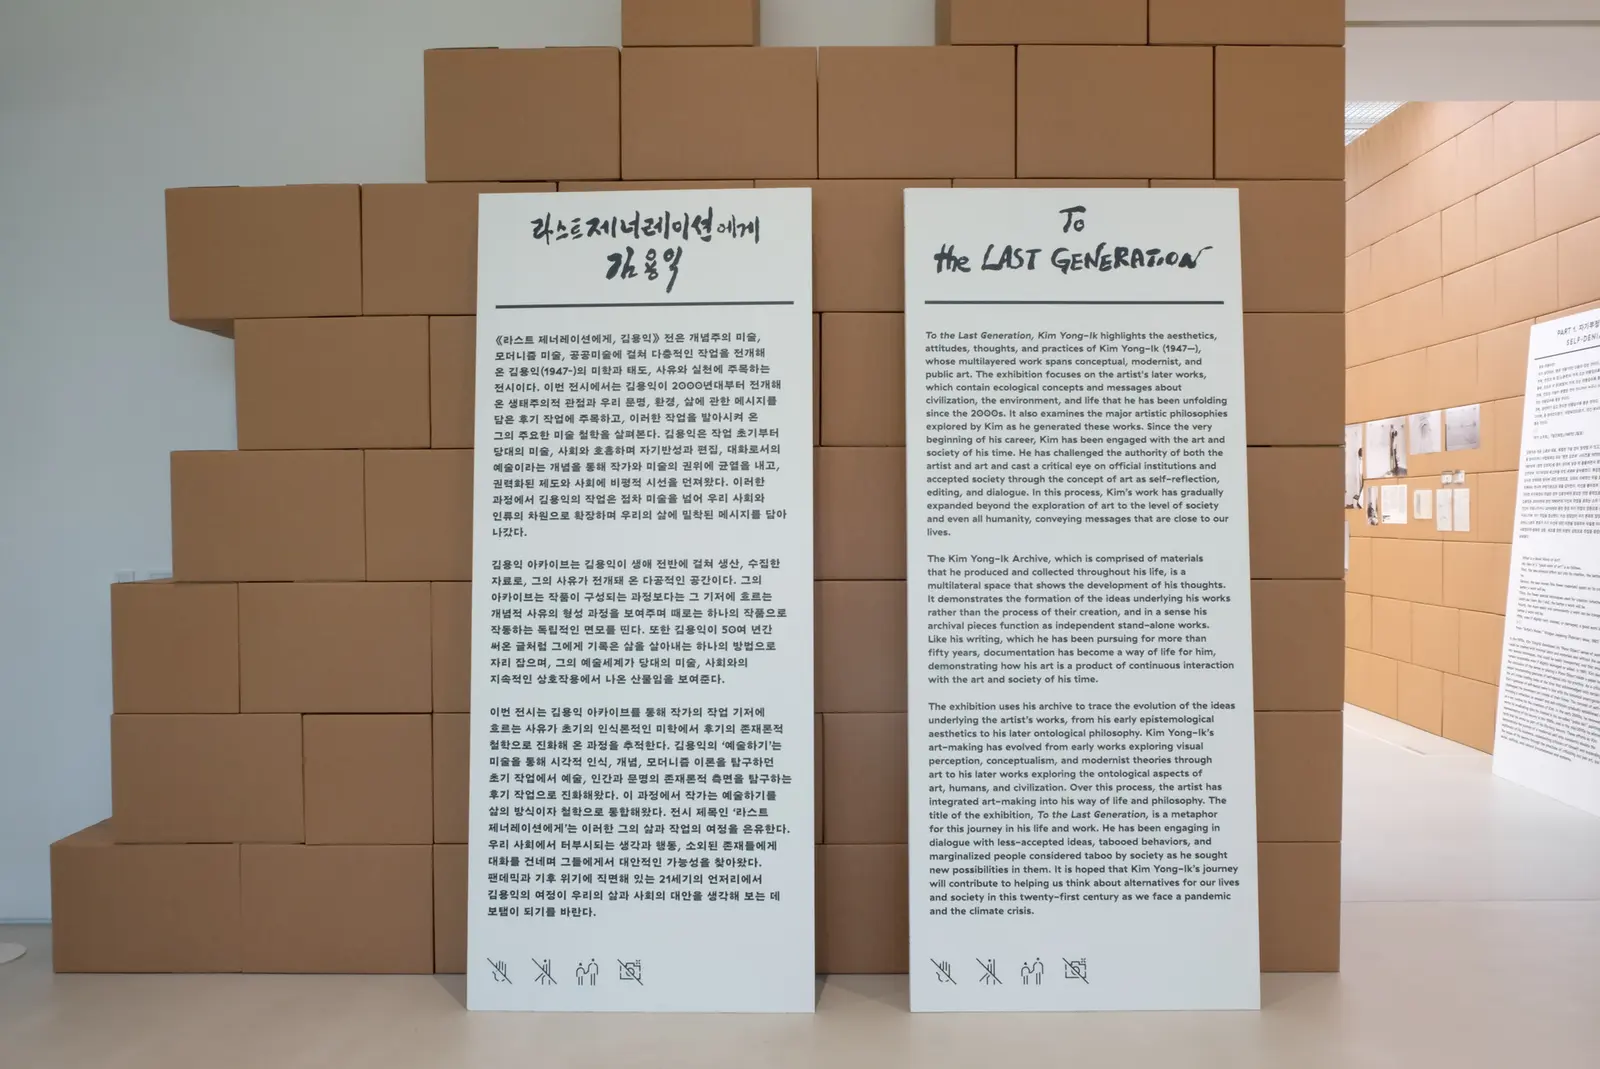 라스트 제너레이션에게
김용익
《라스트 제너레이션에게, 김용익》 전은 개념주의 미술,
모더니즘 미술, 공공미술에 걸쳐 다층적인 작업을 전개해
온 김용익(1947-)의 미학과 태도, 사유와 실천에 주목하는
전시이다. 이번 전시에서는 김용익이 2000년대부터 전개해
온 생태주의적 관점과 우리 문명, 환경, 삶에 관한 메시지를
담은 후기 작업에 주목하고, 이러한 작업을 발아시켜 온
그의 주요한 미술 철학을 살펴본다. 김용익은 작업 초기부터
당대의 미술, 사회와 호흡하며 자기반성과 편집, 대화로서의
예술이라는 개념을 통해 작가와 미술의 권위에 균열을 내고,
권력화된 제도와 사회에 비평적 시선을 던져왔다. 이러한
과정에서 김용익의 작업은 점차 미술을 넘어 우리 사회와
인류의 차원으로 확장하며 우리의 삶에 밀착된 메시지를 담아
나갔다.
김용익 아카이브는 김용익이 생애 전반에 걸쳐 생산, 수집한
자료로, 그의 사유가 전개돼 온 다공적인 공간이다. 그의
아카이브는 작품이 구성되는 과정보다는 그 기저에 흐르는
개념적 사유의 형성 과정을 보여주며 때로는 하나의 작품으로
작동하는 독립적인 면모를 띤다. 또한 김용익이 50여 년간
써온 글처럼 그에게 기록은 삶을 살아내는 하나의 방법으로
자리 잡으며, 그의 예술세계가 당대의 미술, 사회와의
지속적인 상호작용에서 나온 산물임을 보여준다.
이번 전시는 김용익 아카이브를 통해 작가의 작업 기저에
흐르는 사유가 초기의 인식론적인 미학에서 후기의 존재론적
철학으로 진화해 온 과정을 추적한다. 김용익의 ‘예술하기’는
미술을 통해 시각적 인식, 개념, 모더니즘 이론을 탐구하던
초기 작업에서 예술, 인간과 문명의 존재론적 측면을 탐구하는
후기 작업으로 진화해왔다. 이 과정에서 작가는 예술하기를
삶의 방식이자 철학으로 통합해왔다. 전시 제목인 ‘라스트
제너레이션에게’는 이러한 그의 삶과 작업의 여정을 은유한다.
우리 사회에서 터부시되는 생각과 행동, 소외된 존재들에게
대화를 건네며 그들에게서 대안적인 가능성을 찾아왔다.
팬데믹과 기후 위기에 직면해 있는 21세기의 언저리에서
김용익의 여정이 우리의 삶과 사회의 대안을 생각해 보는 데
보탬이 되기를 바란다.
To
the LAST GENERATION
To the Last Generation, Kim Yong-Ik highlights the aesthetics,
attitudes, thoughts, and practices of Kim Yong-Ik (1947—),
whose multilayered work spans conceptual, modernist, and
public art. The exhibition focuses on the artist's later works,
which contain ecological concepts and messages about
civilization, the environment, and life that he has been unfolding
since the 2000s. It also examines the major artistic philosophies
explored by Kim as he generated these works. Since the very
beginning of his career, Kim has been engaged with the art and
society of his time. He has challenged the authority of both the
artist and art and cast a critical eye on official institutions and
accepted society through the concept of art as self-reflection,
editing, and dialogue. In this process, Kim's work has gradually
expanded beyond the exploration of art to the level of society
and even all humanity, conveying messages that are close to our
lives.
The Kim Yong-Ik Archive, which is comprised of materials
that he produced and collected throughout his life, is a
multilateral space that shows the development of his thoughts.
It demonstrates the formation of the ideas underlying his works
rather than the process of their creation, and in a sense his
archival pieces function as independent stand-alone works.
Like his writing, which he has been pursuing for more than
fifty years, documentation has become a way of life for him,
demonstrating how his art is a product of continuous interaction
with the art and society of his time.
The exhibition uses his archive to trace the evolution of the ideas
underlying the artist's works, from his early epistemological
aesthetics to his later ontological philosophy. Kim Yong-Ik's
art-making has evolved from early works exploring visual
perception, conceptualism, and modernist theories through
art to his later works exploring the ontological aspects of
art, humans, and civilization. Over this process, the artist has
integrated art-making into his way of life and philosophy. The
title of the exhibition, To the Last Generation, is a metaphor
for this journey in his life and work. He has been engaging in
dialogue with less-accepted ideas, tabooed behaviors, and
marginalized people considered taboo by society as he sought
new possibilities in them. It is hoped that Kim Yong-Ik's journey
will contribute to helping us think about alternatives for our lives
and society in this twenty-first century as we face a pandemic
and the climate crisis.
PART 1.